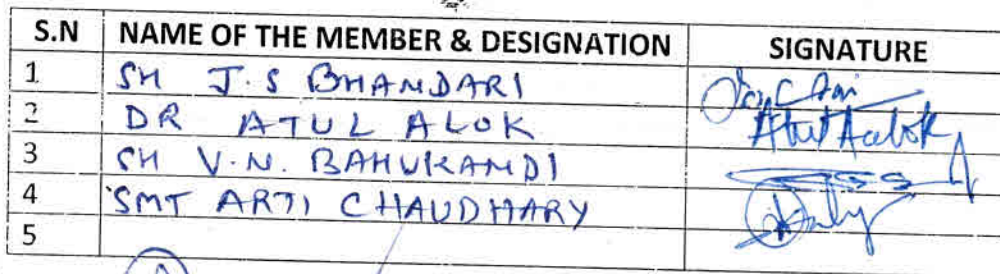 S.N NAME OF THE MEMBER & DESIGNATION SIGNATURE
1 SH J.S BHANDARI
2 DR ATUL ALOK Atul Aalok
3 SH V.N. BAHUKANDI
4 SMT ARTI CHAUDHARY
5